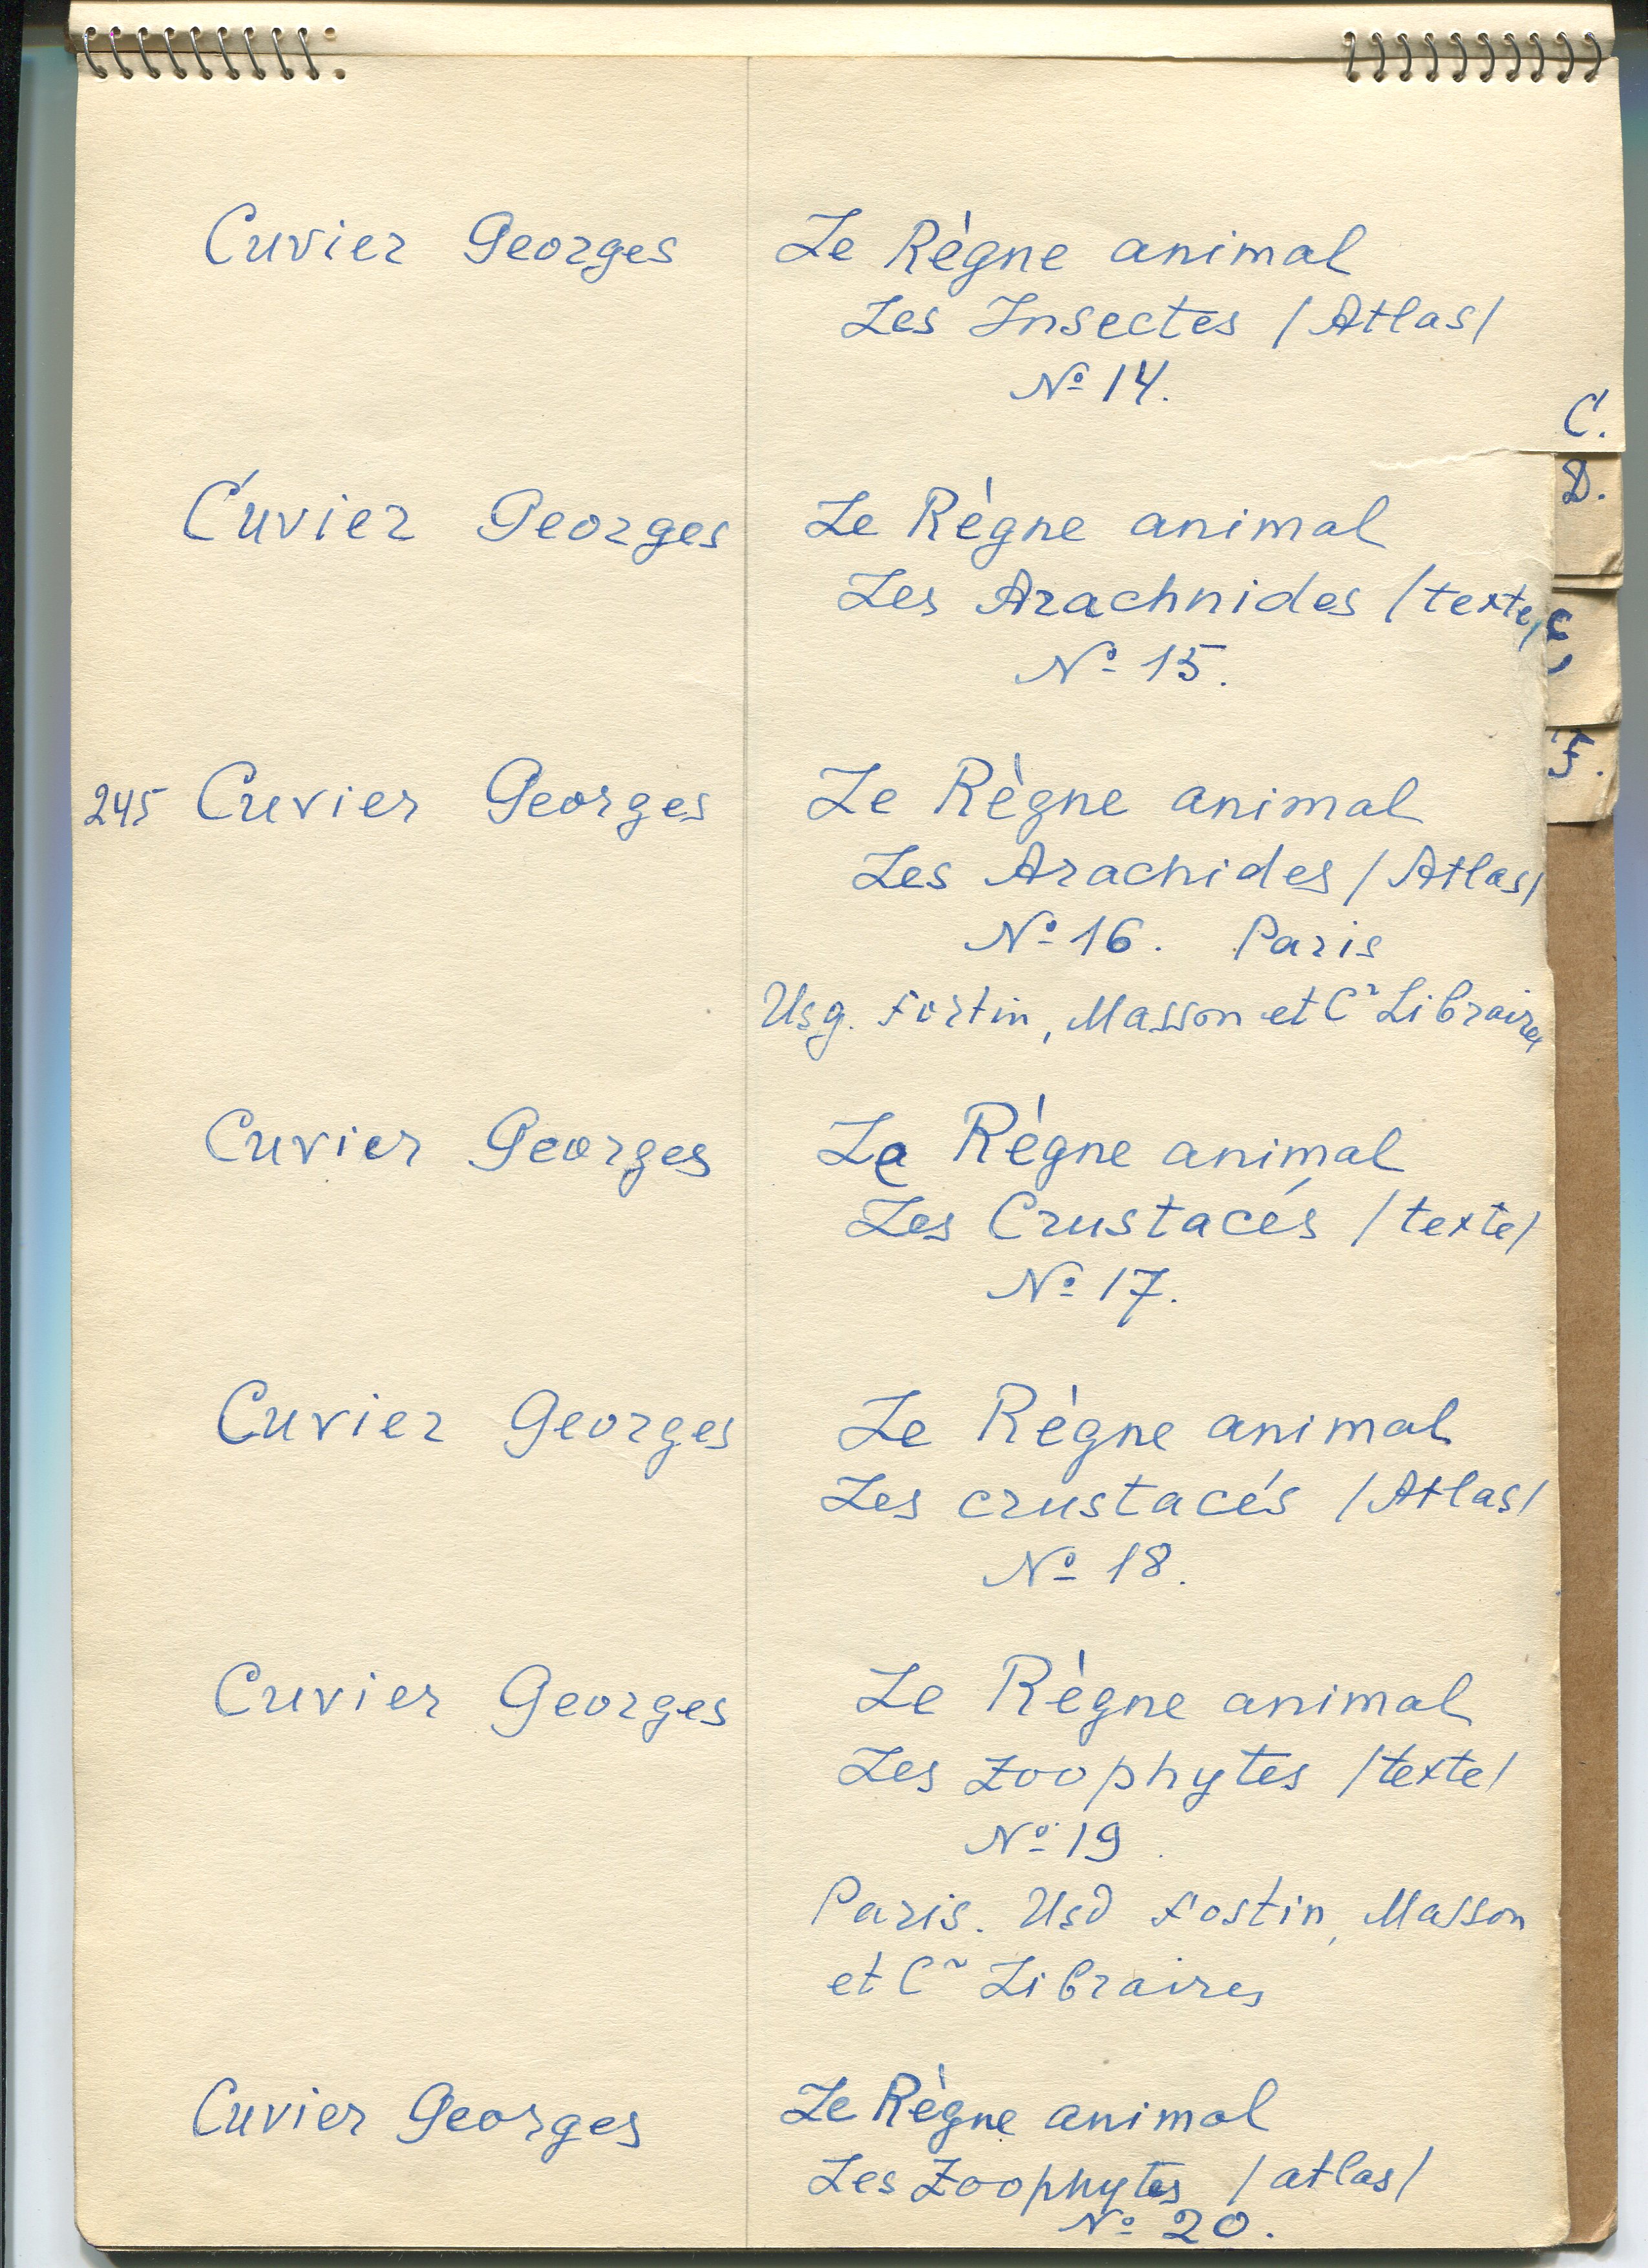 Cuvier Georges Le Règne animal
Les Insectes /Atlas/
№ 14.
C.
D.
Cuvier Georges Le Règne animal
Les Arachnides /texte/
№ 15.
F.
245 Cuvier Georges Le Règne animal
Les Arachides /Atlas/
№ 16. Paris
Fortin, Masson et C Libraires
Cuvier Georges Le Règne animal
Les Crustacés /texte/
№ 17.
Cuvier Georges Le Règne animal
Les crustacés /Atlas/
№ 18.
Cuvier Georges Le Règne animal
Les Zoophytes /texte/
№ 19
Paris. Fostin, Masson
et C Libraires
Cuvier Georges Le Règne animal
Les Zoophytes /atlas/
№ 20.